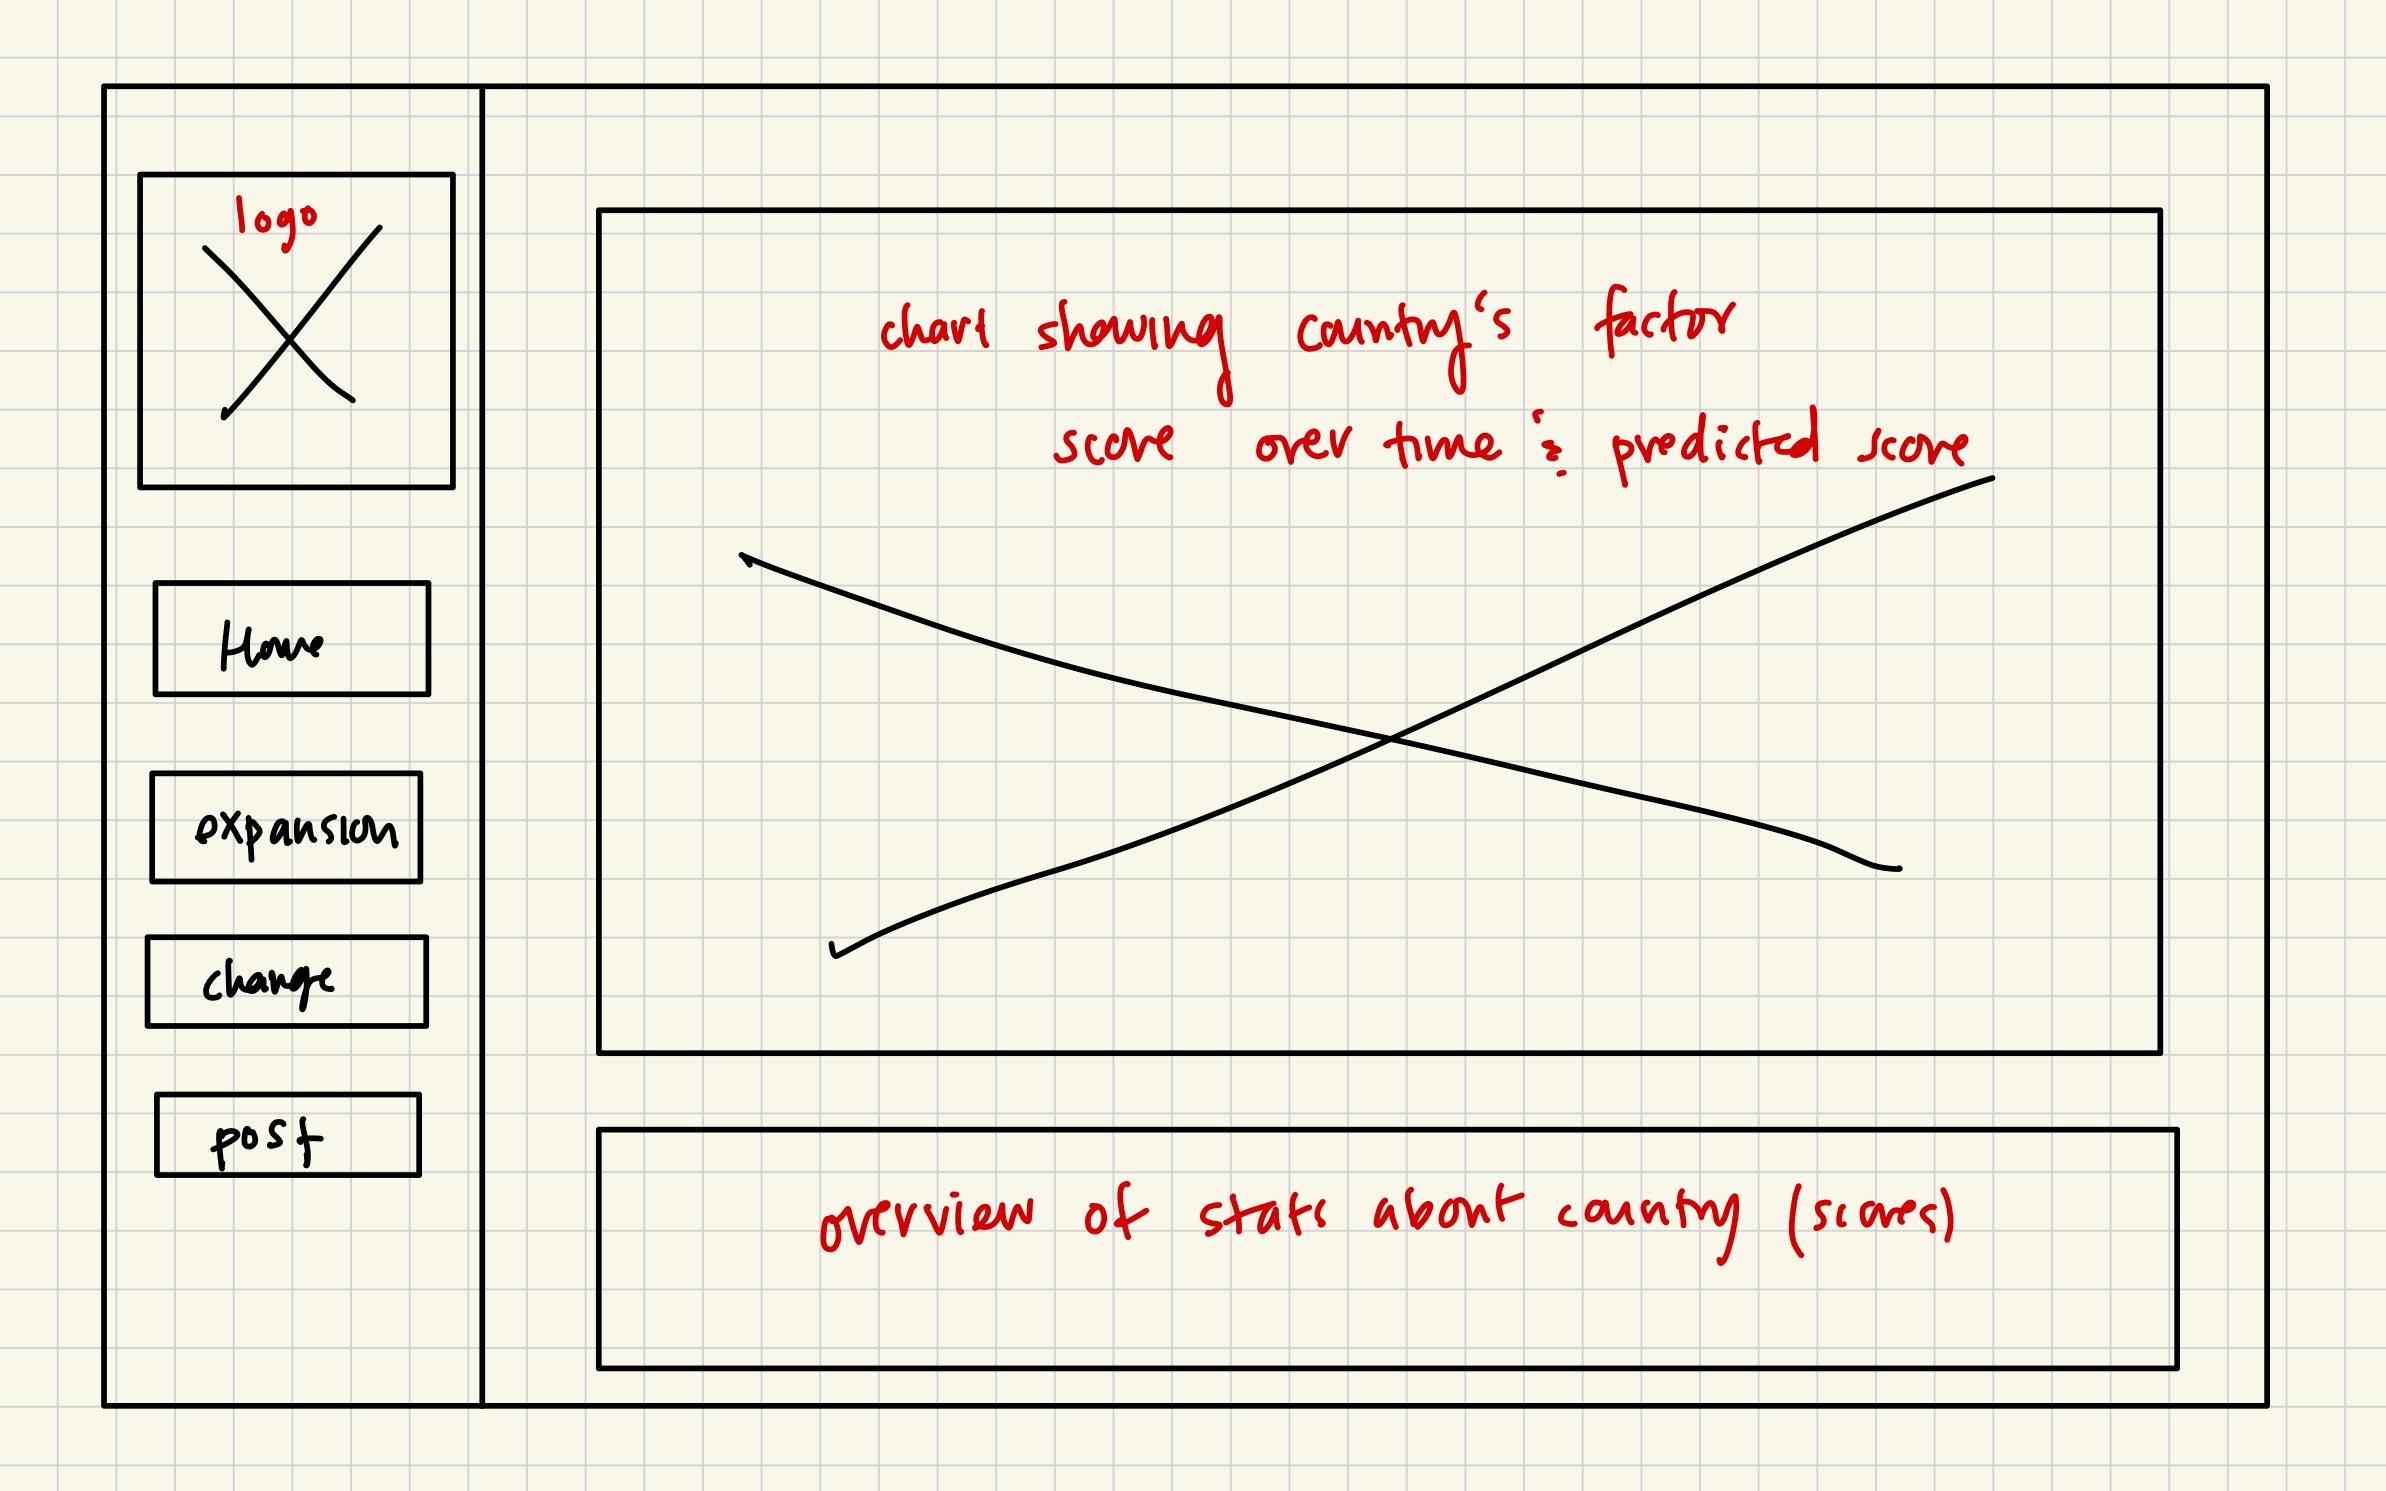 logo
Home
expansion
change
post
chart showing country's factor
score over time & predicted score
overview of stats about country (scores)